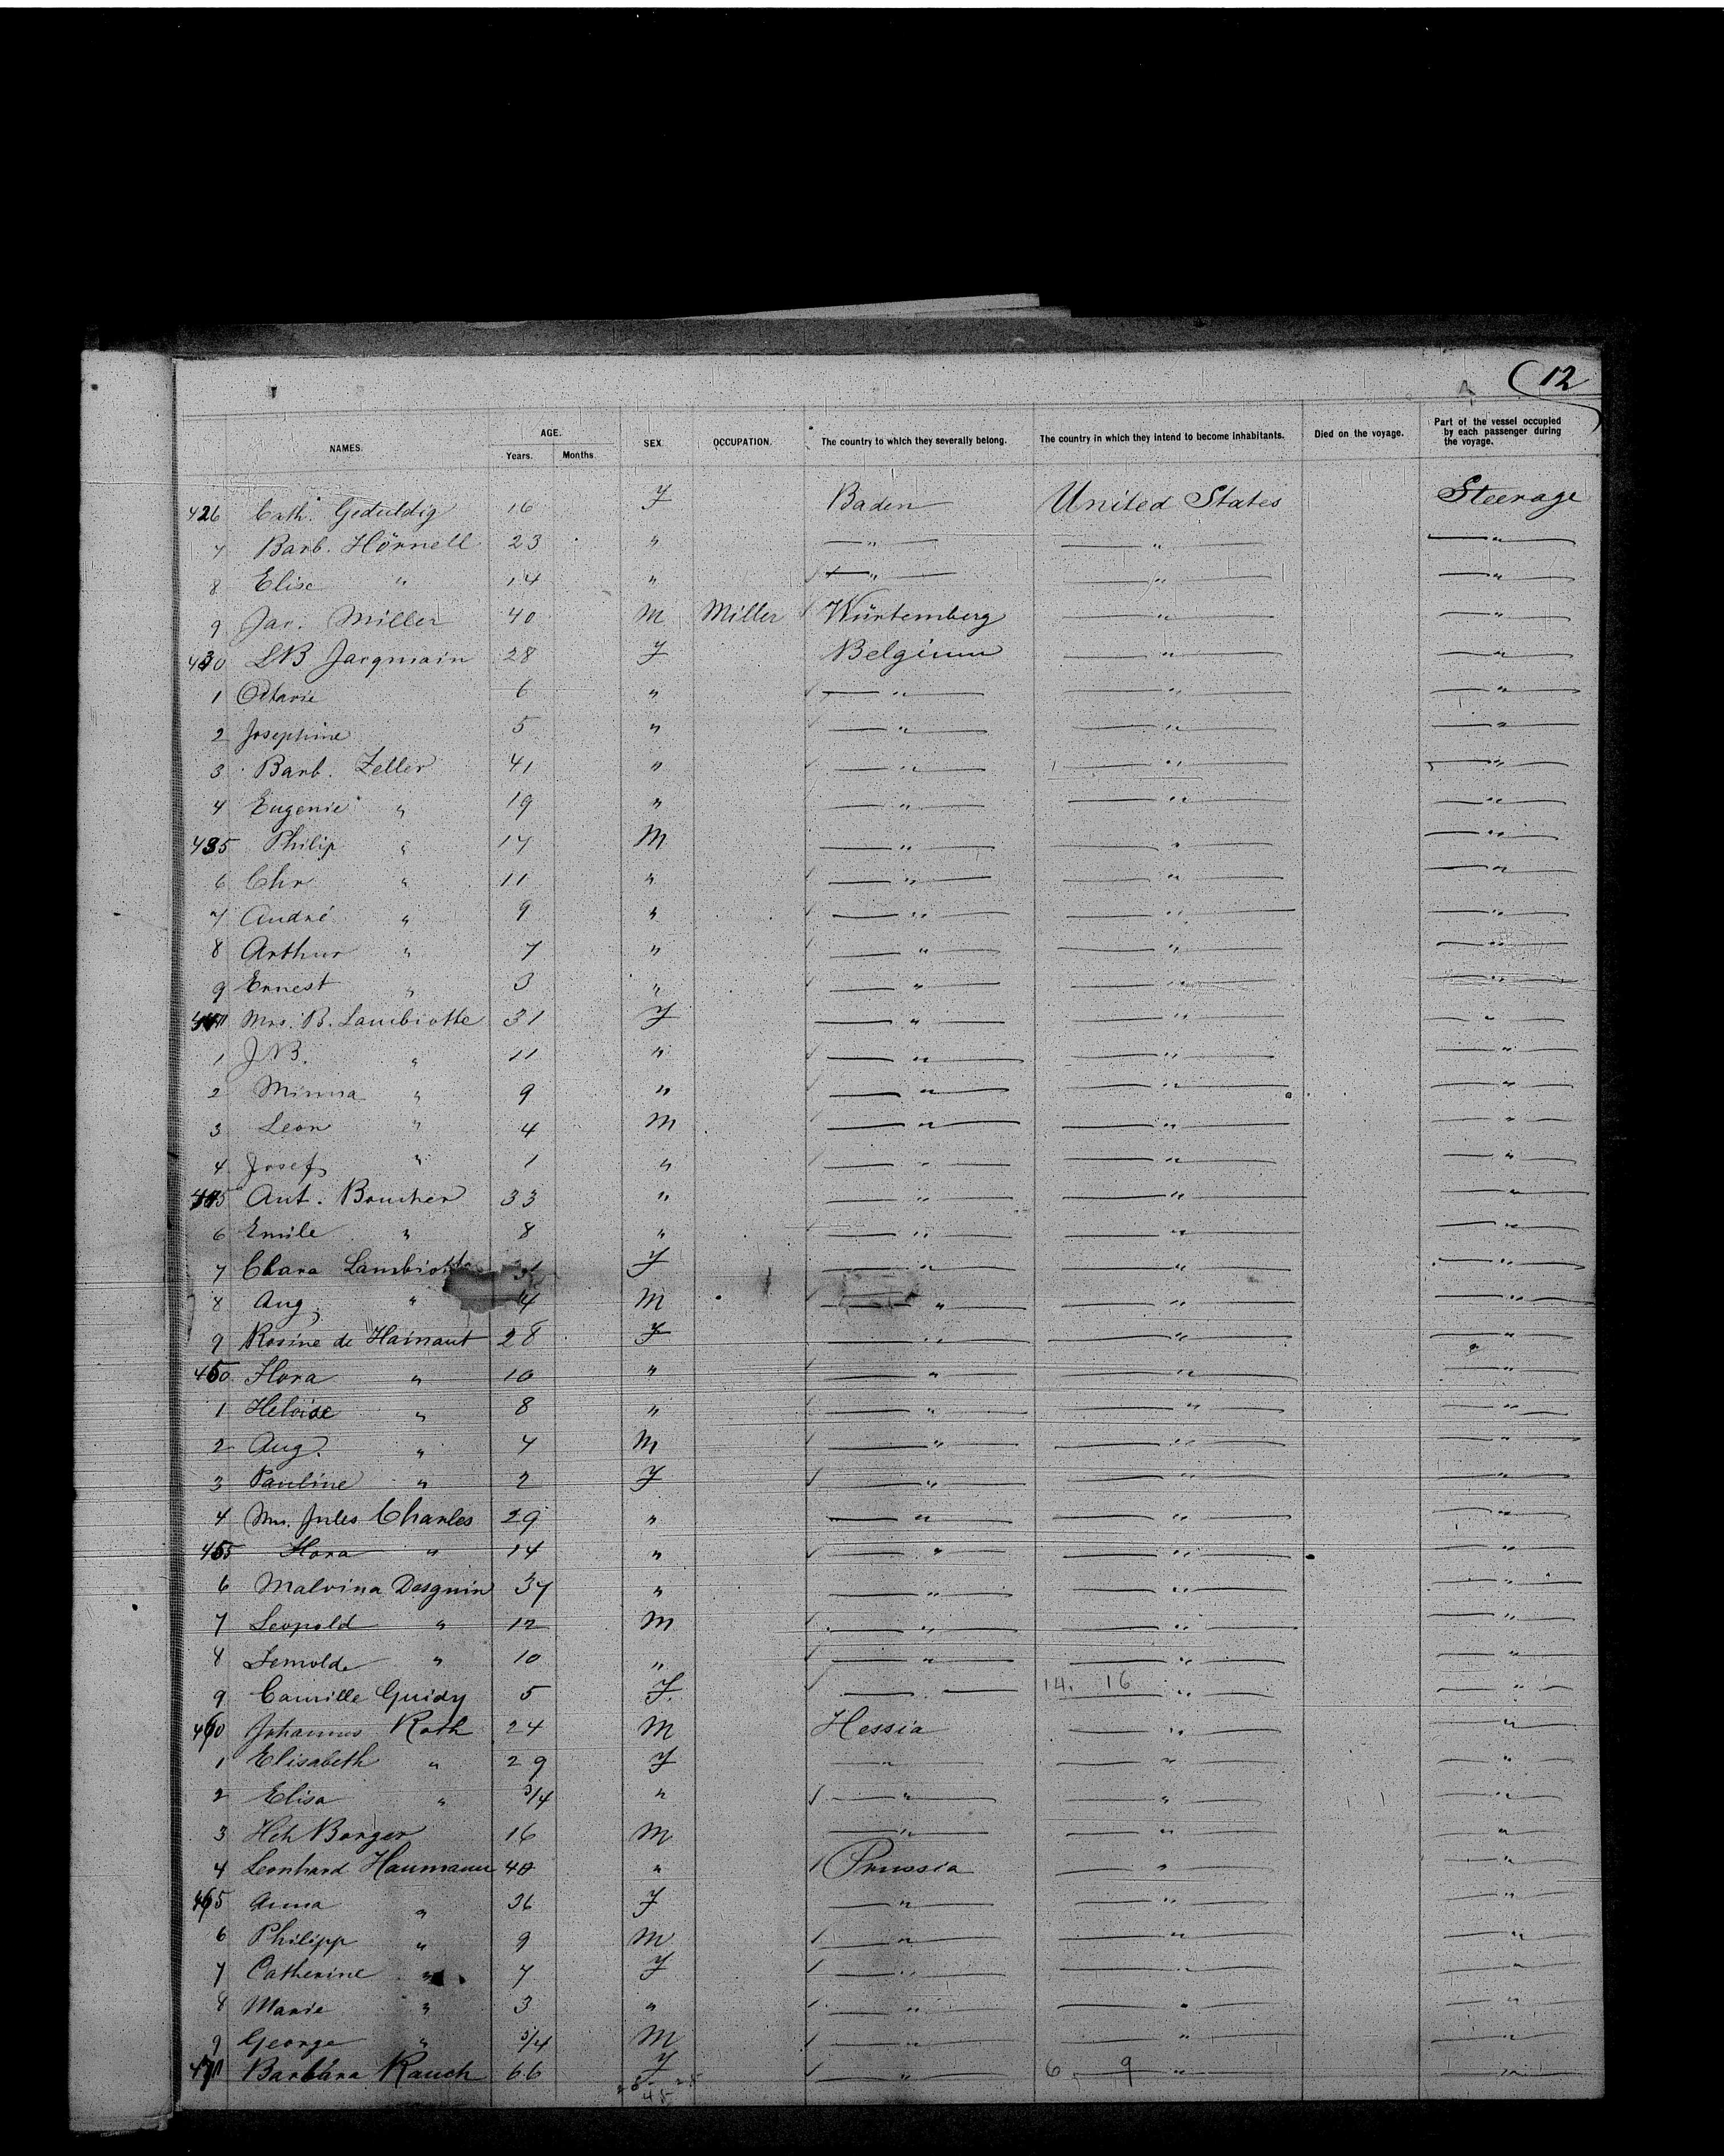 (12
NAMES. AGE. Years. Months SEX. OCCUPATION. The country to which they severally belong. The country in which they intend to become inhabitants. Died on the voyage. Part of the vessel occupied by each passenger during the voyage.
426 Cath. Geduldig 16 F Baden United States Steerage
7 Barb. Hörnell 23 " " " "
8 Elise " 14 " " " "
9 Jac. Miller 40 M Miller Würtemberg " "
430 LB Jacqmain 28 F Belgium " "
1 Octavie 6 " " " "
2 Josephine 5 " " " "
3 Barb. Zeller 41 " " " "
4 Eugenie " 19 " " " "
435 Philip " 17 M " " "
6 Chr " 11 " " " "
7 André " 9 " " " "
8 Arthur " 7 " " " "
9 Ernest " 3 " " " "
440 Mrs. B. Lambiotte 31 F " " "
1 J.B. " 11 " " " "
2 Minna " 9 " " " "
3 Leon " 4 M " " "
4 Josef " 1 " " " "
445 Ant. Boucher 33 " " " "
6 Emile " 8 " " " "
7 Clara Lambiotte 31 F " " "
8 Aug. " 4 M " " "
9 Rosine de Hainaut 28 F " " "
450 Flora " 10 " " " "
1 Heloise " 8 " " " "
2 Aug. " 4 M " " "
3 Pauline " 2 F " " "
4 Mrs. Jules Charles 29 " " " "
455 Flora " 14 " " " "
6 Malvina Desguin 37 " " " "
7 Leopold " 12 M " " "
8 " 10 " " " "
9 Camille Guidy 5 F. " 14. 16 " "
460 Johannes Roth 24 M Hessia " "
1 Elisabeth " 29 F " " "
2 Elisa " 3/4 " " " "
3 Hch Borger 16 M " " "
4 Leonhard Haumann 40 " Prussia " "
465 Anna " 36 F " " "
6 Philipp " 9 M " " "
7 Catherine " 7 F " " "
8 Marie " 3 " " " "
9 George " 3/4 M " " "
470 Barbara Rauch 66 F " 6 9 " "
45